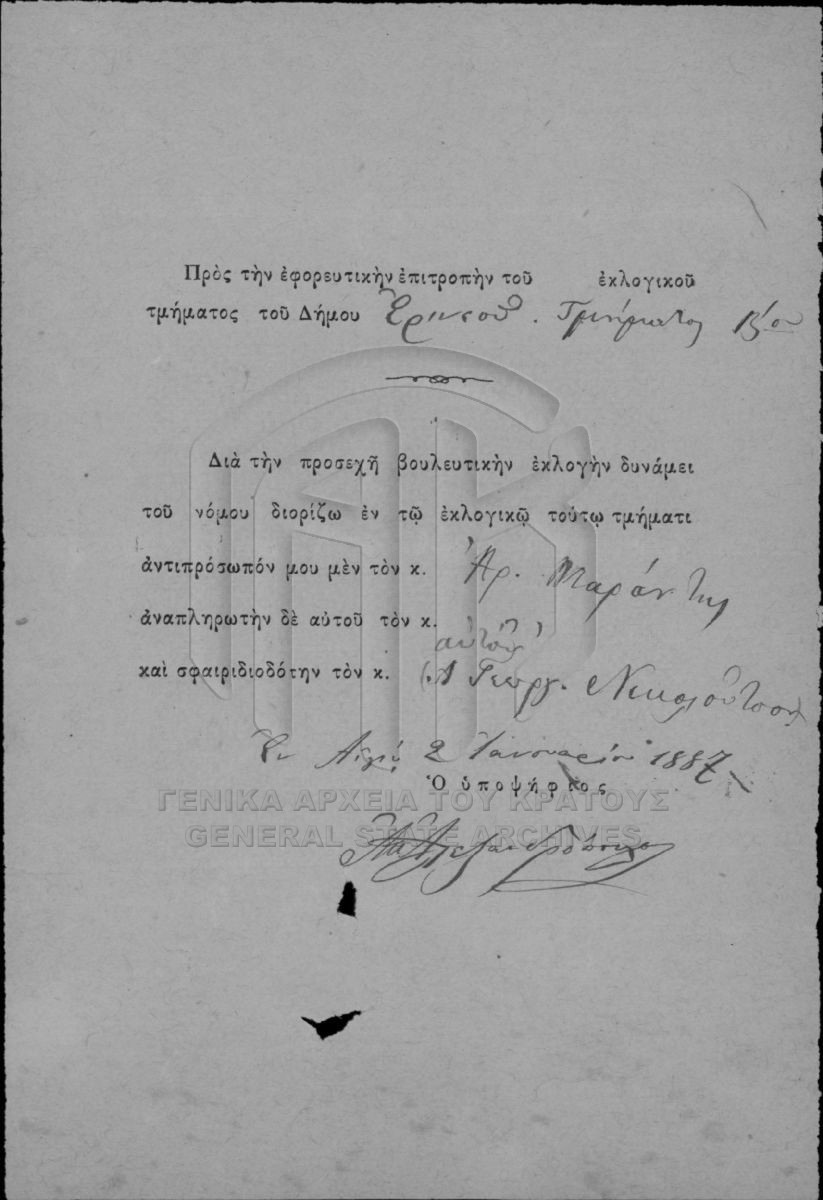 Πρὸς τὴν ἐφορευτικὴν ἐπιτροπὴν τοῦ ἐκλογικοῦ
τμήματος τοῦ Δήμου Ἐρινεοῦ. Τμήματος
Διὰ τὴν προσεχῆ βουλευτικὴν ἐκλογὴν δυνάμει
τοῦ νόμου διορίζω ἐν τῷ ἐκλογικῷ τούτῳ τμήματι
ἀντιπρόσωπόν μου μὲν τὸν κ. Ἀρ. Μαράντην
ἀναπληρωτὴν δὲ αὐτοῦ τὸν κ.
καὶ σφαιριδιοδότην τὸν κ. Γεωργ.
Ἐν Αἰγίῳ 2 Ἰανουαρίου 1887
Ὁ ὑποψήφιος
ΓΕΝΙΚΑ ΑΡΧΕΙΑ ΤΟΥ ΚΡΑΤΟΥΣ
GENERAL STATE ARCHIVES